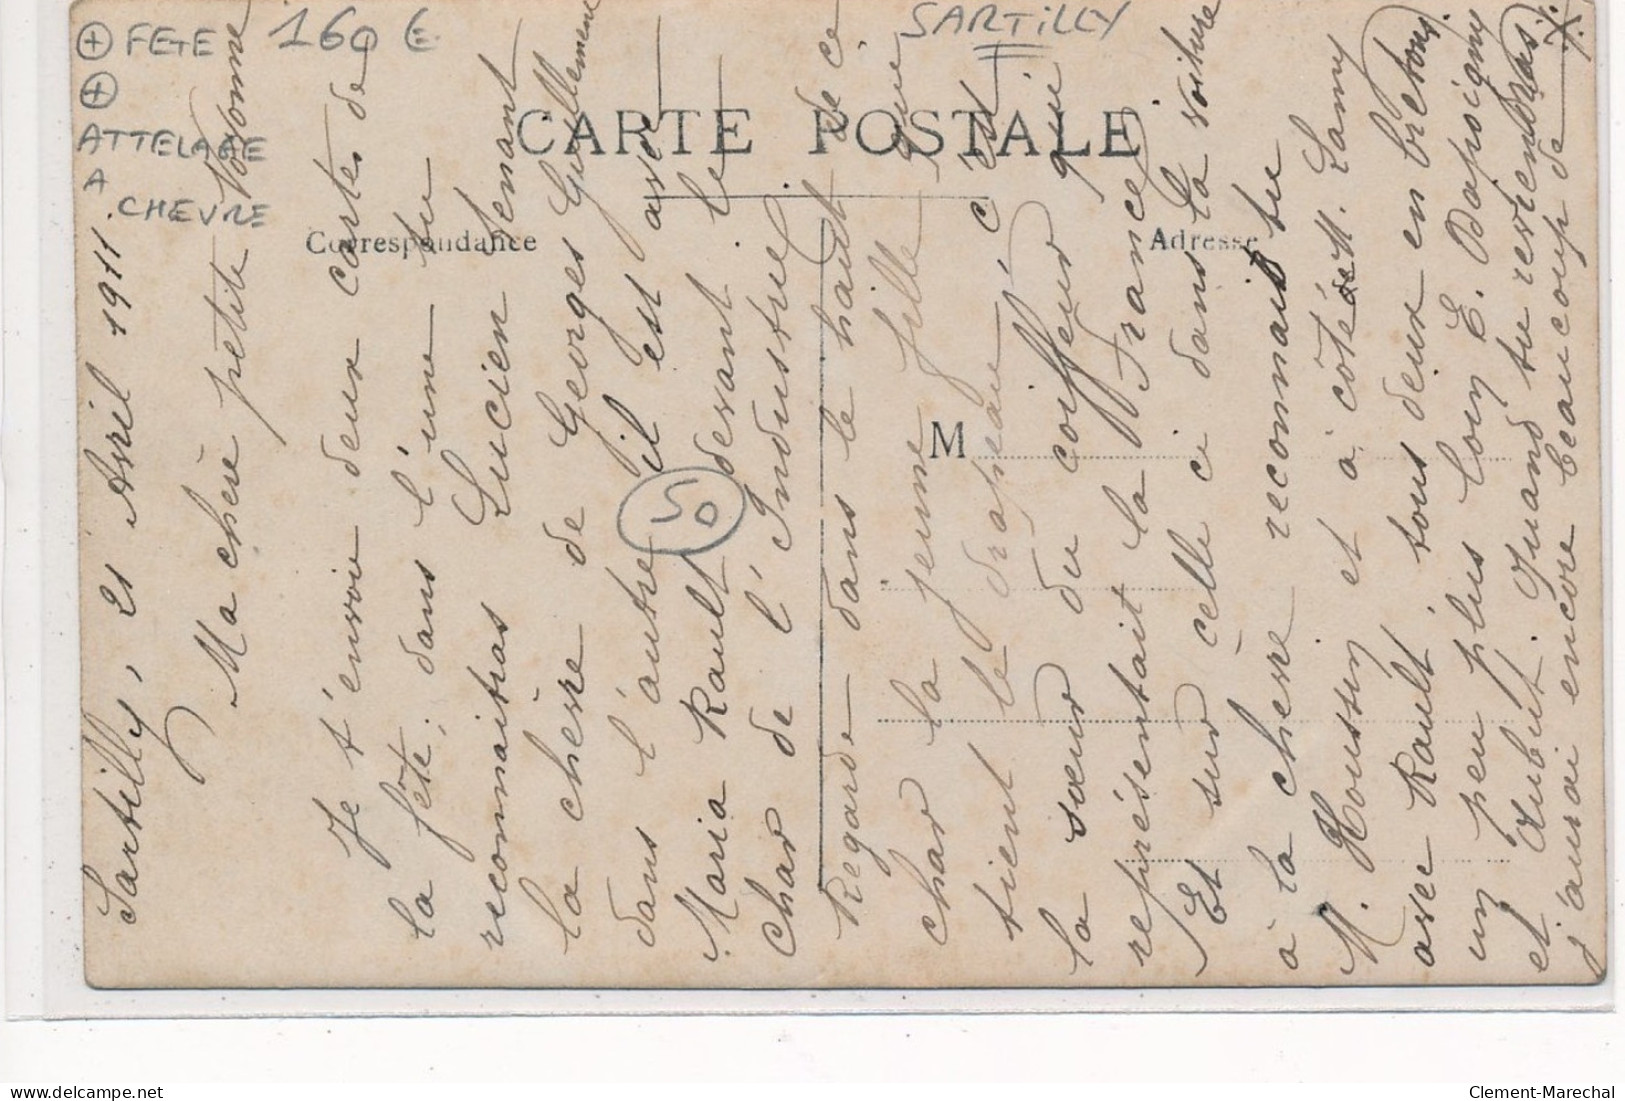 + FETE 160 €
SARTILLY
+
ATTELAGE
A
CHEVRE
CARTE POSTALE
Correspondance
Adresse
M
50
Sartilly, 21 Avril 1911.
Ma chère petite
Je t'envoie deux cartes de
la fête; dans l'une tu
reconnaitras Lucien tenant
la chèvre de Georges
dans l'autre il est avec
Maria Rault devant le
char de l'Industrie
Regarde dans le haut de ce
char la jeune fille que
tient le drapeau c'est
la sœur du coiffeur qui
représentait la France
Et sur celle ci dans la voiture
à la chèvre reconnais tu
M. Houssin et à côté de M. Lamy
avec Rault, tous deux en bretons.
un peu plus loin E. Bapoigny
et Quand tu reviendras
j'aurai encore beaucoup de
Clement-Marechal
www.delcampe.net